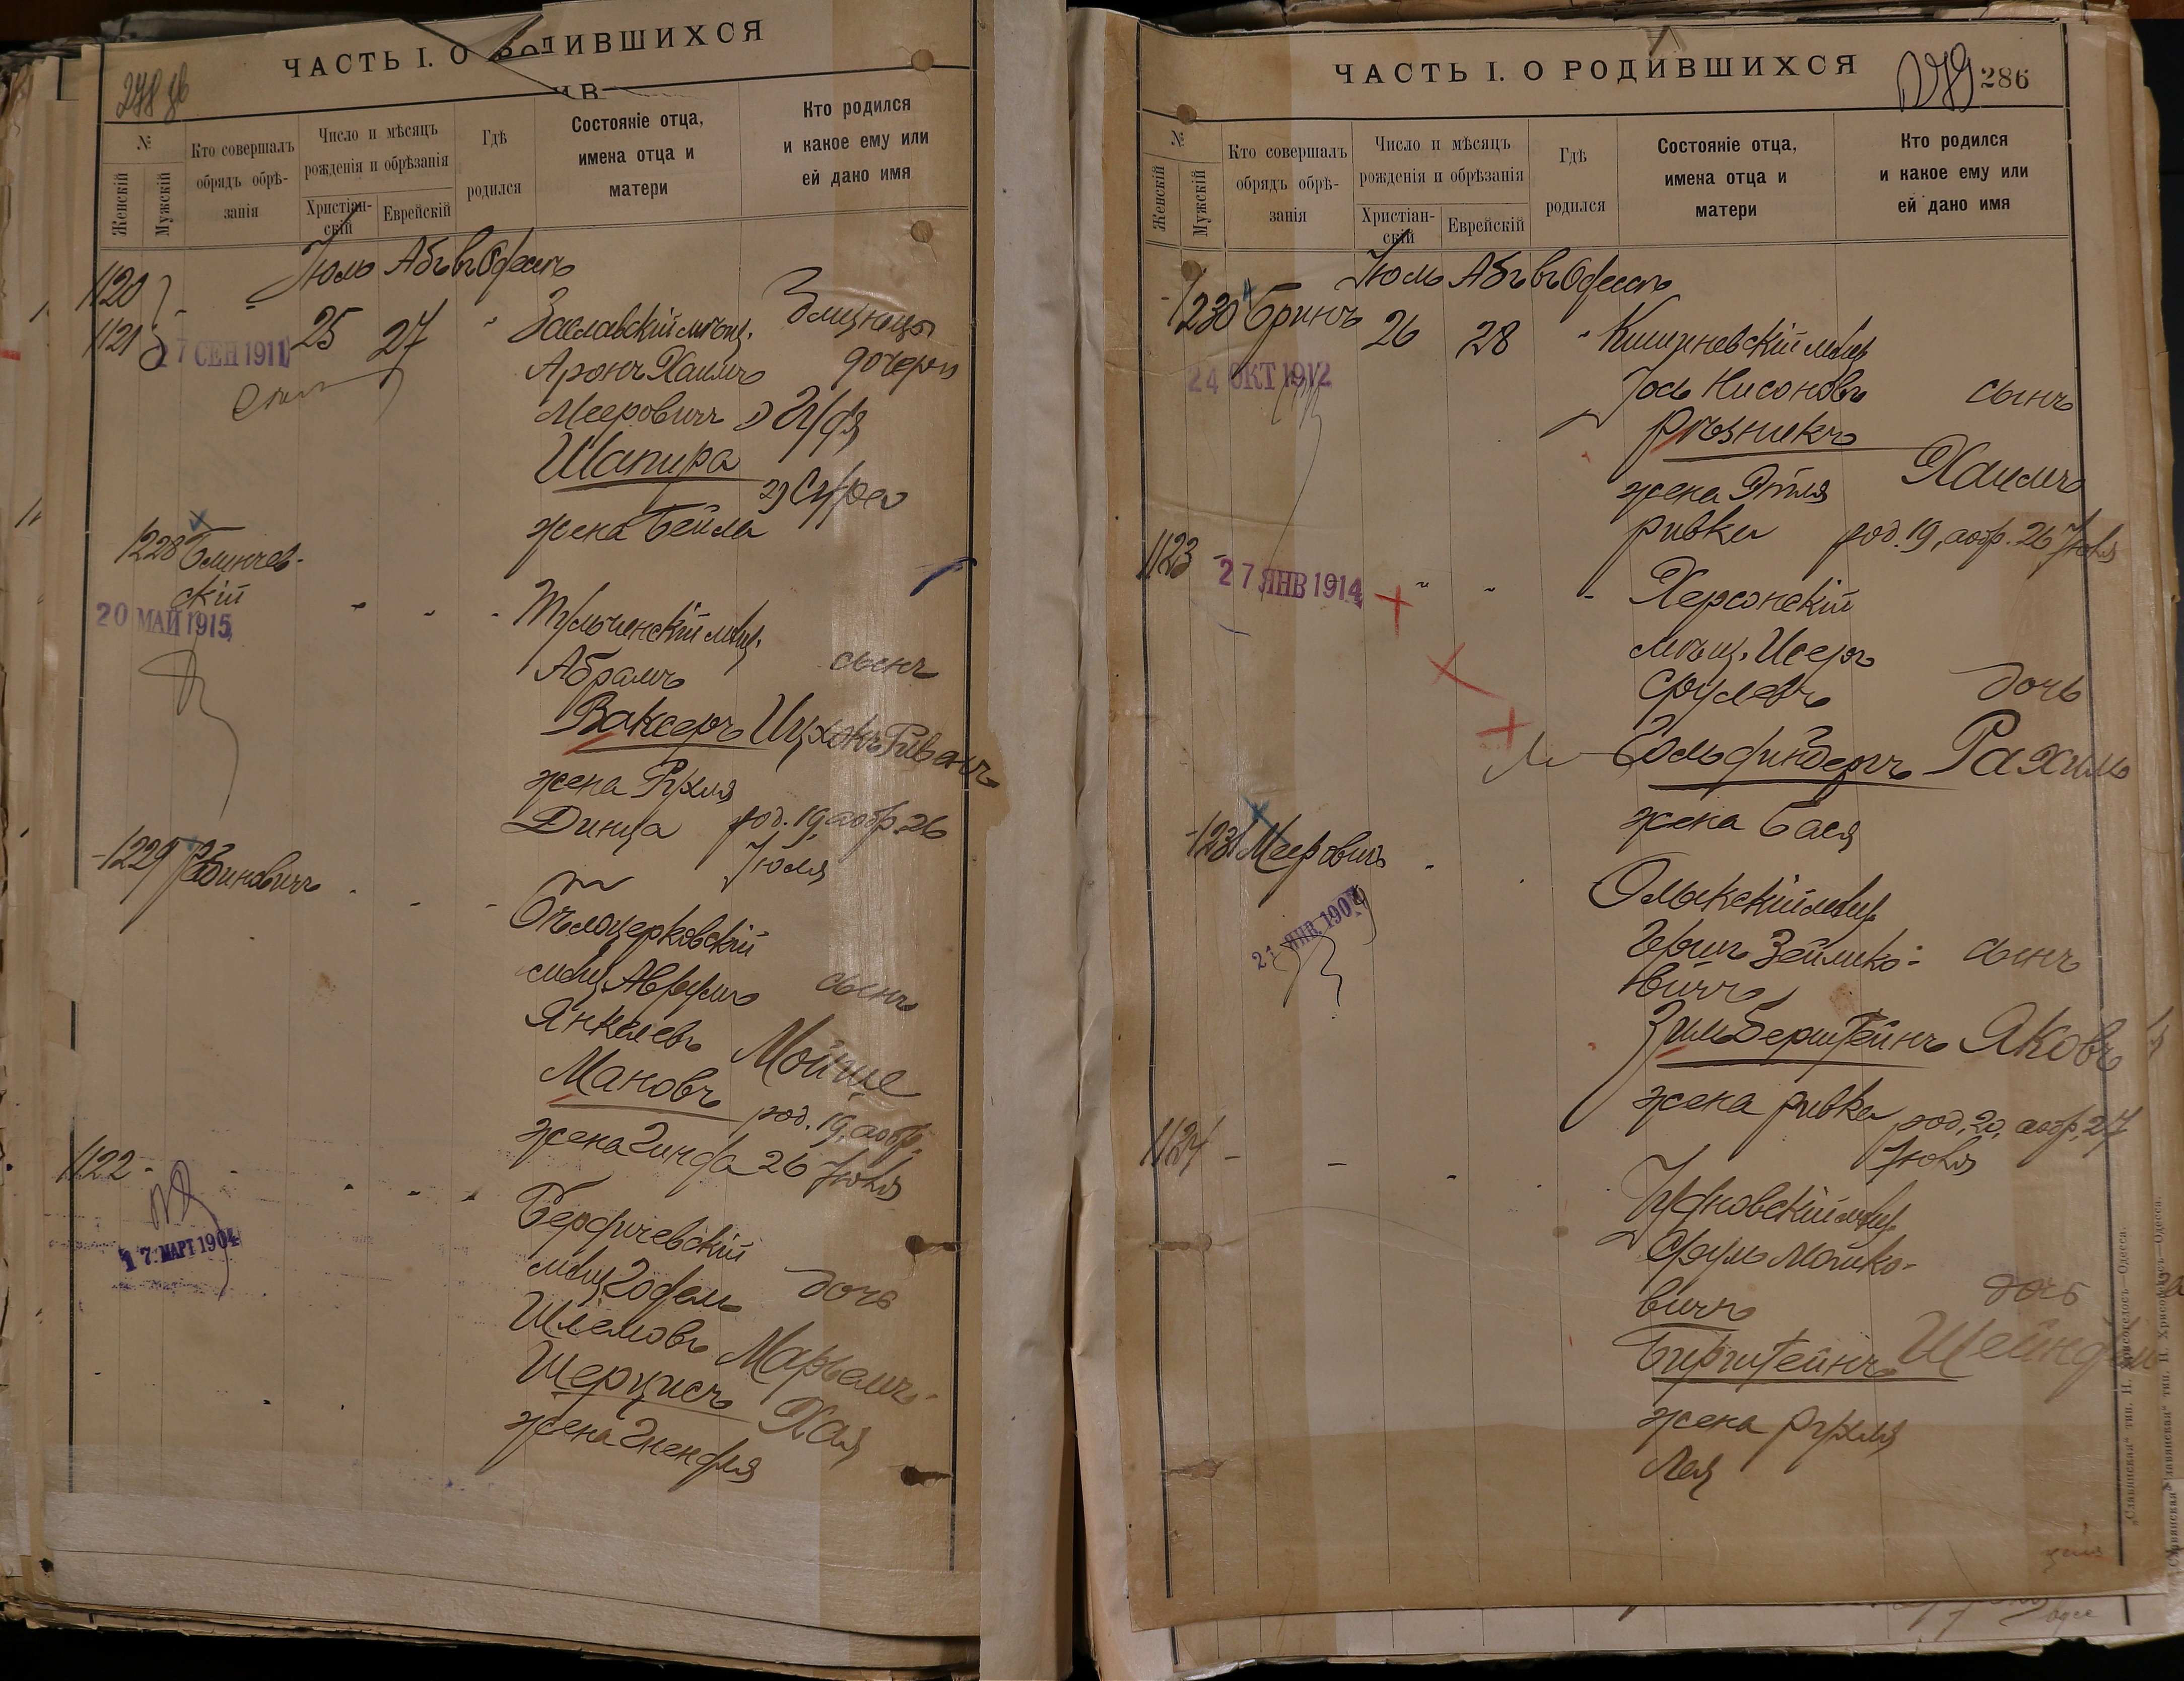 ЧАСТЬ I. О РОДИВШИХСЯ
№
Женскій
Мужскій
Кто совершалъ
обрядъ обрѣ-
занія
Число и мѣсяцъ
рожденія и обрѣзанія
Христіан-
скій
Еврейскій
Гдѣ
родился
Состояніе отца,
имена отца и
матери
Кто родился
и какое ему или
ей дано имя
Іюль Абъ въ Одессѣ
1120
1121
17 СЕН 1911
25 27
Заславскій мѣщ.
Аронъ Хаимъ
Мееровичъ
Шапира
жена Бейла
Близнецы
дочери
1)
2) Сура
1228 Блинчев-
скій
20 МАЙ 1915
Тульчинскій мѣщ.
Абрамъ
Ваксеръ
жена Рухля
Динца
сынъ
Ицхокъ Ривенъ
род. 19, а обр. 26
Іюля
1229 Рабиновичъ
Бѣлоцерковскій
мѣщ. Аврумъ
Янкелевъ
Мановъ
жена Гинда
сынъ
Мойше
род. 19, а обр.
26 Іюля
1122
17. МАРТ 1904
Бердичевскій
мѣщ. Годель
Шлемовъ
Шерцисъ
жена Гнендля
дочь
Марьемъ-
Хая
ЧАСТЬ I. О РОДИВШИХСЯ
279 286
№
Женскій
Мужскій
Кто совершалъ
обрядъ обрѣ-
занія
Число и мѣсяцъ
рожденія и обрѣзанія
Христіан-
скій
Еврейскій
Гдѣ
родился
Состояніе отца,
имена отца и
матери
Кто родился
и какое ему или
ей дано имя
Іюль Абъ въ Одессѣ
1230 Бринъ 26 28
24 ОКТ 1912
Кишиневскій мѣщ.
Іось Нисоновъ
Рѣзникъ
жена Этля
Ривка
сынъ
Хаимъ
род. 19, а обр. 26 Іюля
1123
27 ЯНВ 1914
Херсонскій
мѣщ. Исеръ
Срулевъ
Гольфиндеръ
жена Бася
дочь
Рахиль
1231 Мееровичъ
21 ЯНВ. 190
Олыкскій мѣщ.
Гершъ Зейлико-
вичъ
Зильберштейнъ
жена Ривка
сынъ
Яковъ
род. 20, а обр. 27
Іюля
1124
Чудновскій мѣщ.
Сруль Мошко-
вичъ
Бирштейнъ
жена Рухля
Лея
дочь
Шейндель